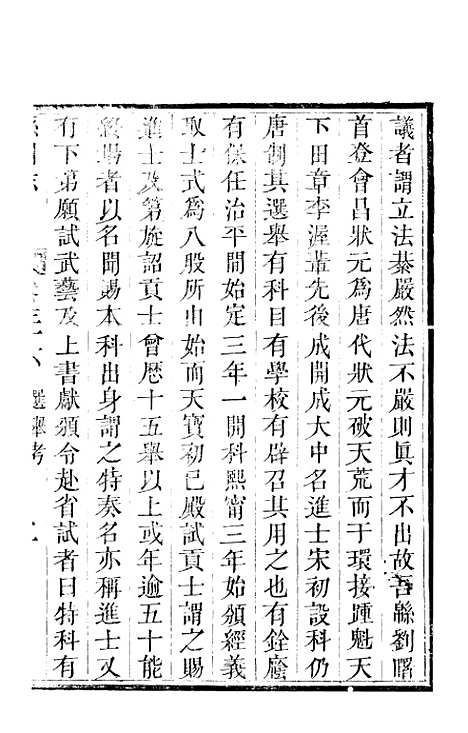 議者謂立法綦嚴然法不嚴則眞才不出故吾縣劉曙
首登會昌狀元爲唐代狀元破天荒而于環接踵魁天
下田章李渥輩先後成開成大中名進士宋初設科仍
唐制其選舉有科目有學校有辟召其用之也有銓廕
有保任治平間始定三年一開科熙甯三年始頒經義
取士式爲八股所由始而天寶初已殿試貢士謂之賜
進士及第旋詔貢士會歴十五舉以上或年逾五十能
賜者以名聞賜本科出身謂之特奏名亦稱進士又
有下第願試武藝及上書獻頒令赴省試者曰特科有
選舉考